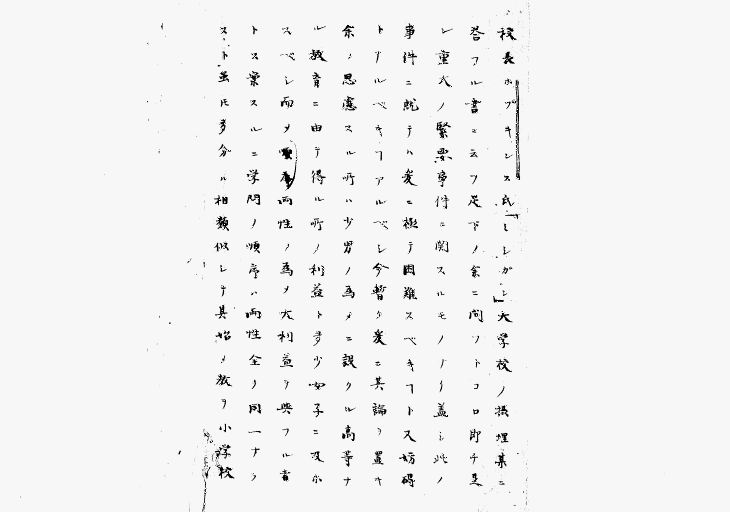 校長ホプキンス氏「ミシガン」大学校ノ摂理某ニ
答フル書ニ云フ足下ノ余ニ問フトコロ即チ是
レ重大ノ緊要事件ニ関スルモノナリ蓋シ此ノ
事件ニ就テハ爰ニ極テ困難スベキヿト又妨碍
トナルベキヿアルベシ今暫ク爰ニ其論ヲ置キ
余ノ思慮スル所ハ少男ノ為メニ設クル高等ナ
ル教育ニ由テ得ル所ノ利益ト多少女子ニ及ホ
スベシ而メ両性ノ為メ大利益ヲ與フル者
トス案スルニ学問ノ順序ハ両性全ク同一ナラ
スト虽モ多分ハ相類似シテ其始メ教ヲ小学校